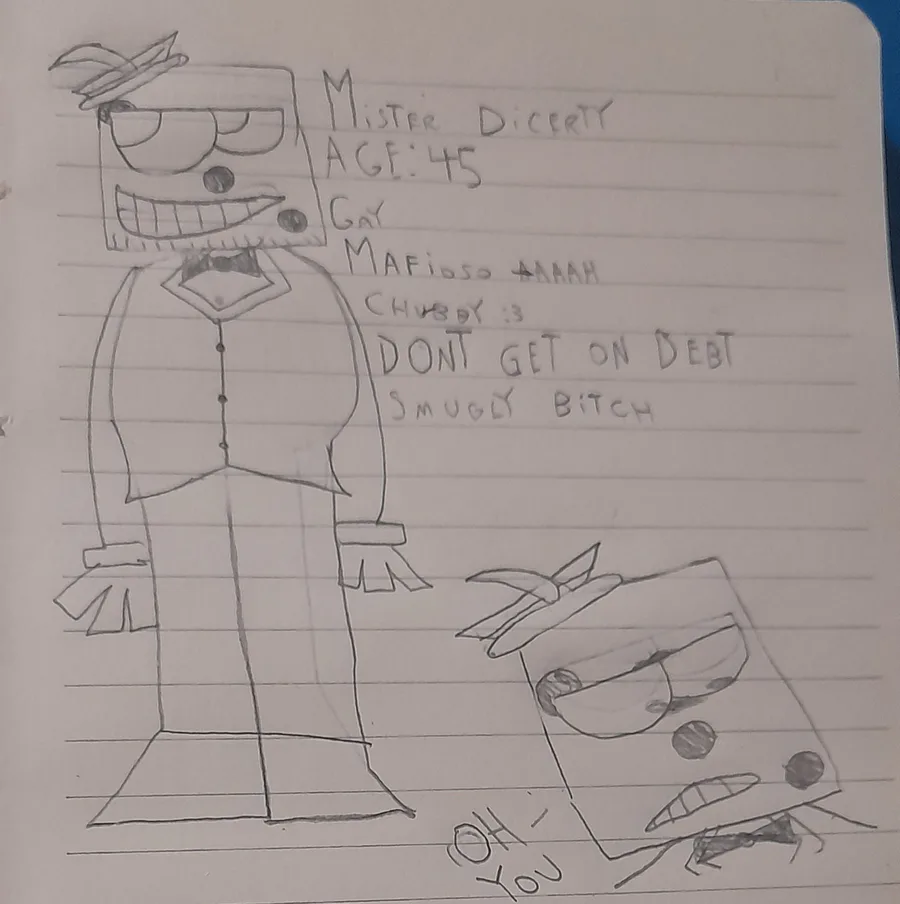 MISTER DICERTY
AGE: 45
GAY
MAFIOSO AAAAH
CHUBBY :3
DONT GET ON DEBT
SMUGLY BITCH
OH -
YOU